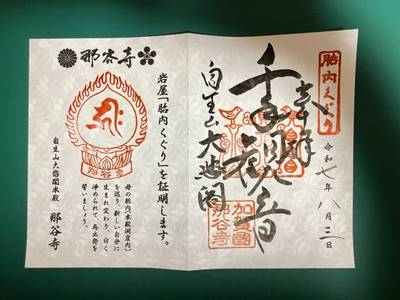 胎内くぐり
奉拝
令和七年八月三日
千手観音
自生山大悲閣
加賀國
那谷寺
那谷寺
岩屋「胎内くぐり」を証明します。
那谷寺
母の胎内（本殿洞窟内）
を巡り、新しい自分に
生まれ変わり、白く
浄められて、再出発を
誓いましょう。
自生山大悲閣本殿 那谷寺